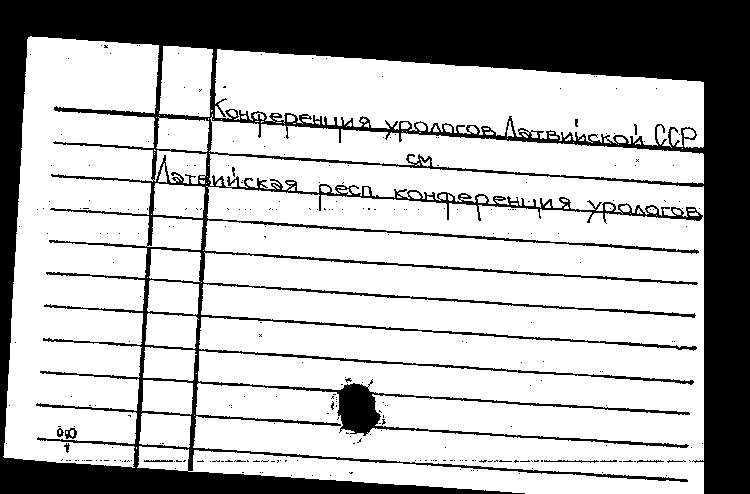 Конференция урологов Латвийской ССР
см.
Латвийская респ. конференция урологов